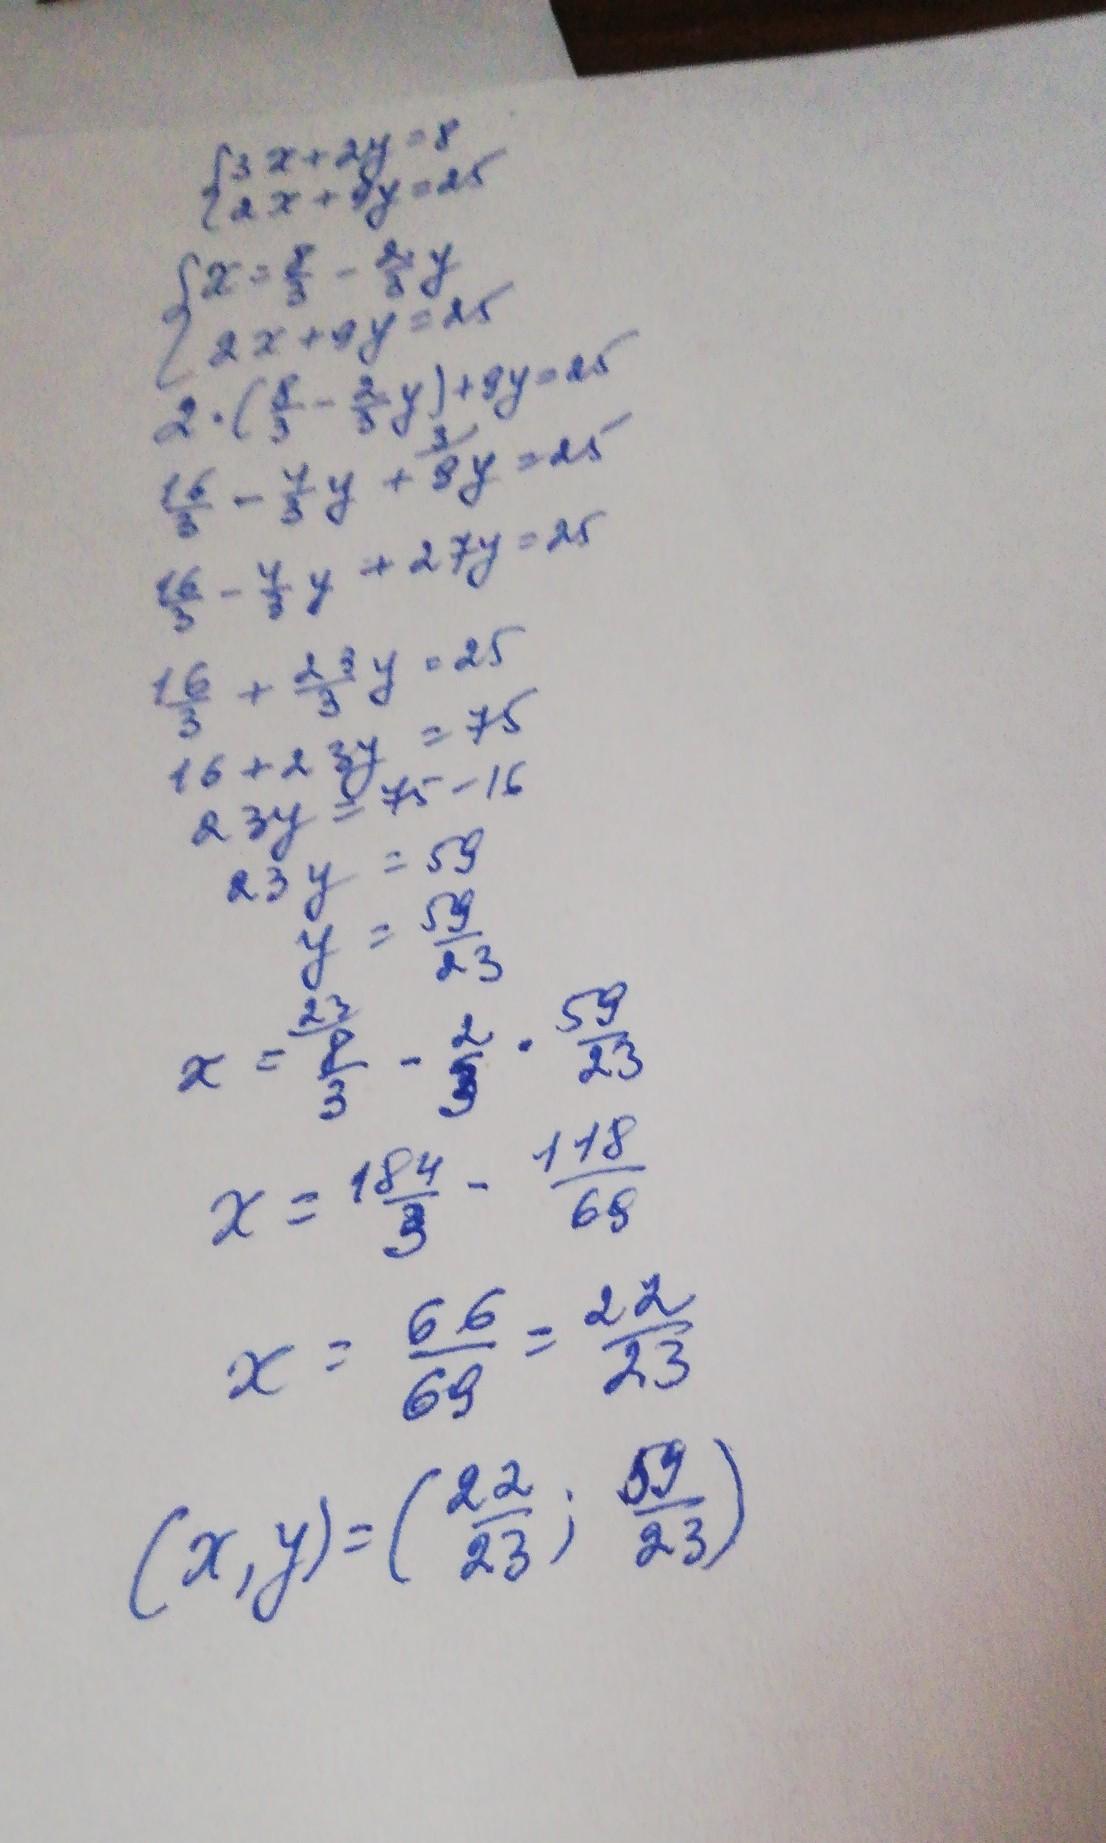 {3x+2y=8
{2x+9y=25
{x=8/3-2/3y
{2x+9y=25
2·(8/3-2/3y)+9y=25
16/3-4/3y+3/9y=25
16/3-4/3y+27y=25
16/3+23/3y=25
16+23y=75
23y=75-16
23y=59
y=59/23
x=23/8/3-2/3·59/23
x=184/3-118/69
x=66/69=22/23
(x,y)=(22/23;59/23)